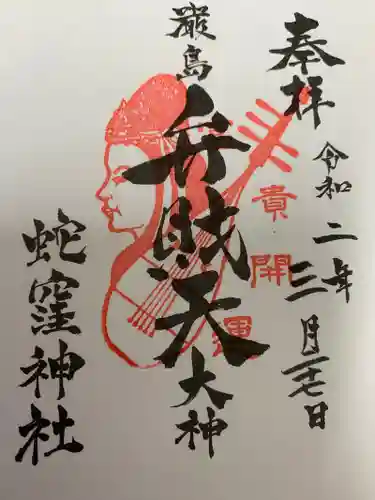 奉拝
令和二年
三月二十七日
厳島
弁財天
大神
貴
開
運
蛇窪神社